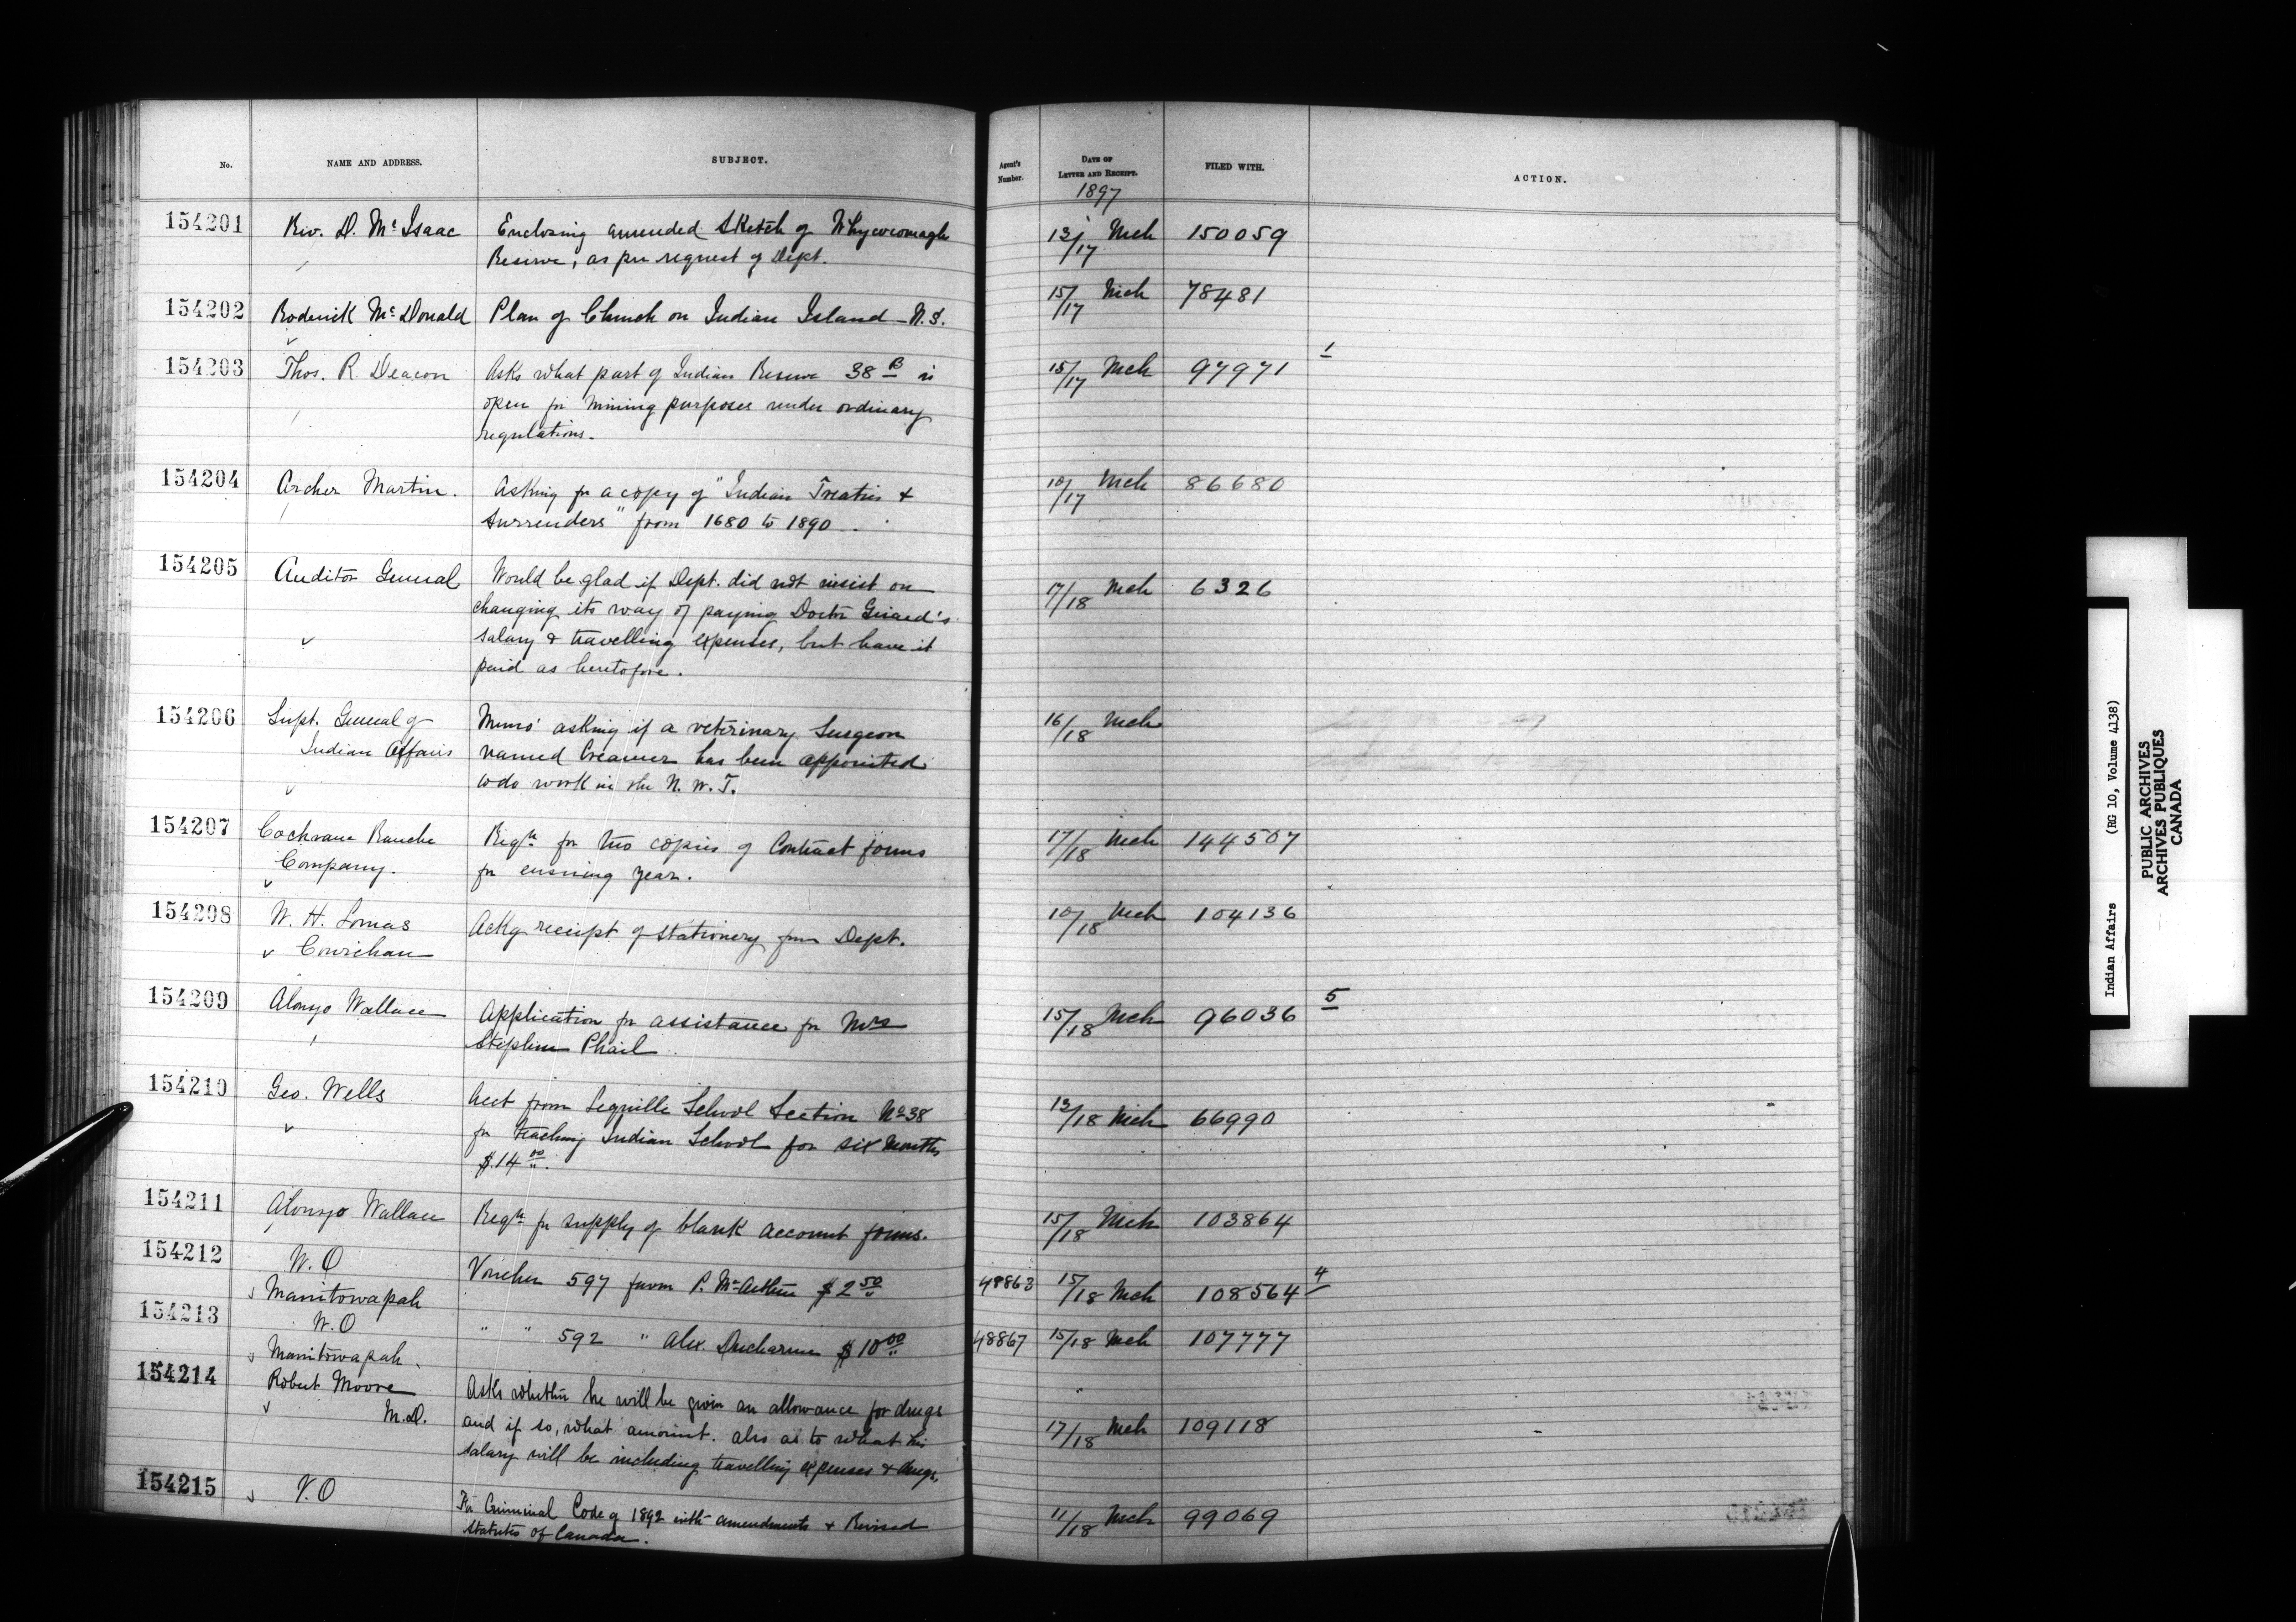 No. NAME AND ADDRESS. SUBJECT. Agent's Number. DATE OF LETTER AND RECEIPT. FILED WITH. ACTION.
1897
154201 Rev. D. McIsaac Enclosing amended Sketch of Whycocomagh 13/17 Mch 150059
Reserve, as per request of Dept.
154202 Roderick McDonald Plan of Church on Indian Island N.S. 15/17 Mch 78481
154203 Thos. R. Deacon Asks what part of Indian Reserve 38 B is 15/17 Mch 97971 1
open for mining purposes under ordinary
regulations.
154204 Archer Martin. Asking for a copy of "Indian Treaties & 10/17 Mch 86680
Surrenders" from 1680 to 1890
154205 Auditor General Would be glad if Dept. did not insist on 17/18 Mch 6326
changing its way of paying Doctor Girard's
salary & travelling expenses, but have it
paid as heretofore.
154206 Supt. General of Memo' asking if a veterinary Surgeon 16/18 Mch
Indian Affairs named Creamer has been appointed
to do work in the N.W.T.
154207 Cochrane Ranche Reqn for two copies of Contract forms 17/18 Mch 144507
Company. for ensuing year.
154208 W. H. Lomas Ackg receipt of stationery from Dept. 10/18 Mch 104136
Cowichan
154209 Alonzo Wallace Application for assistance for Mrs 15/18 Mch 96036 5
Stephen Phail
154210 Geo. Wells Acct from School Section No 38 13/18 Mch 66990
for teaching Indian School for six months
$14 00.
154211 Alonzo Wallace Reqn for supply of blank account forms. 15/18 Mch 103864
154212 W.O Voucher 597 favor P. McArthur $2 50 48863 15/18 Mch 108564 4
Manitowapah
154213 W.O " " 592 " Alex. Ducharme $10 00 48867 15/18 Mch 107777
Manitowapah.
154214 Robert Moore Asks whether he will be given an allowance for drugs
M.D. and if so, what amount. also as to what his 17/18 Mch 109118
salary will be including travelling expenses & drugs.
154215 V.O For Criminal Code of 1892 with amendments & Revised 11/18 Mch 99069
Statutes of Canada.
Indian Affairs (RG 10, Volume 4138)
PUBLIC ARCHIVES
ARCHIVES PUBLIQUES
CANADA